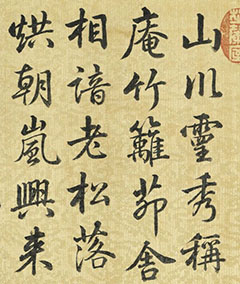 山川靈秀稱
庵竹籬茆舍
相諳老松落
烘朝嵐興来